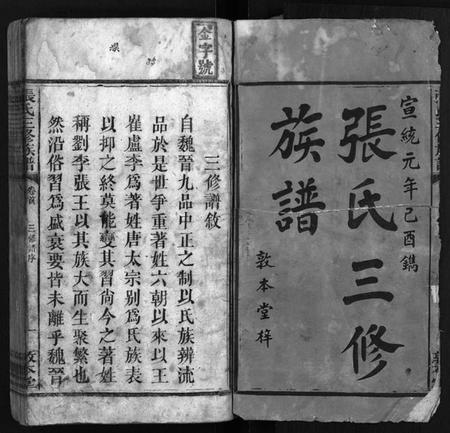 宣統元年己酉鐫
張氏三修
族譜
敦本堂梓
金字號
三修譜敘
自魏晉九品中正之制以氏族辨流
品於是世爭重著姓六朝以來以王
崔盧李為著姓唐太宗別為氏族表
以抑之終莫能變其習尚今之著姓
稱劉李張王以其族大而生聚繁也
然沿俗習為盛衰要皆未離乎魏晉
張氏三修族譜
卷首
三修譜序
一
敦本堂